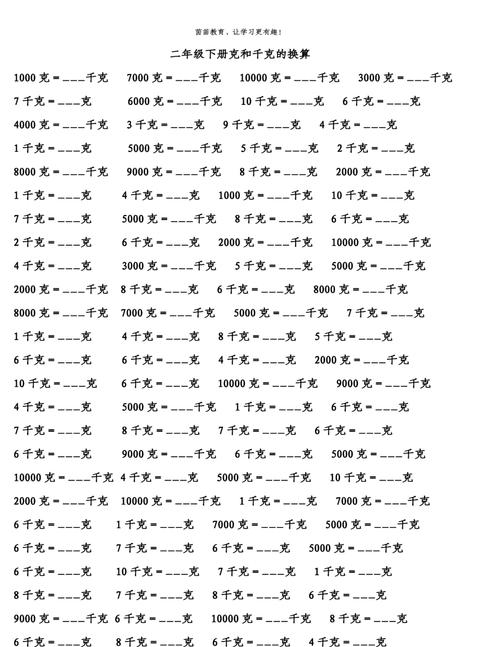 茵茁教育，让学习更有趣！
二年级下册克和千克的换算
1000 克 = ___千克 7000 克 = ___千克 10000 克 = ___千克 3000 克 = ___千克
7 千克 = ___克 6000 克 = ___千克 10 千克 = ___克 6 千克 = ___克
4000 克 = ___千克 3 千克 = ___克 9 千克 = ___克 4 千克 = ___克
1 千克 = ___克 5000 克 = ___千克 5 千克 = ___克 2 千克 = ___克
8000 克 = ___千克 9000 克 = ___千克 8 千克 = ___克 2000 克 = ___千克
1 千克 = ___克 4 千克 = ___克 1000 克 = ___千克 10 千克 = ___克
7 千克 = ___克 5000 克 = ___千克 8 千克 = ___克 6 千克 = ___克
2 千克 = ___克 6 千克 = ___克 2000 克 = ___千克 10000 克 = ___千克
4 千克 = ___克 3000 克 = ___千克 5 千克 = ___克 5000 克 = ___千克
2000 克 = ___千克 8 千克 = ___克 6 千克 = ___克 8000 克 = ___千克
8000 克 = ___千克 7000 克 = ___千克 5000 克 = ___千克 7 千克 = ___克
1 千克 = ___克 4 千克 = ___克 8 千克 = ___克 5 千克 = ___克
6 千克 = ___克 6 千克 = ___克 4 千克 = ___克 2000 克 = ___千克
10 千克 = ___克 6 千克 = ___克 10000 克 = ___千克 9000 克 = ___千克
4 千克 = ___克 5000 克 = ___千克 1 千克 = ___克 6 千克 = ___克
7 千克 = ___克 8 千克 = ___克 7 千克 = ___克 6 千克 = ___克
6 千克 = ___克 9000 克 = ___千克 6 千克 = ___克 5000 克 = ___千克
10000 克 = ___千克 4 千克 = ___克 5000 克 = ___千克 10 千克 = ___克
2000 克 = ___千克 10000 克 = ___千克 1 千克 = ___克 7000 克 = ___千克
6 千克 = ___克 1 千克 = ___克 7000 克 = ___千克 5000 克 = ___千克
6 千克 = ___克 7 千克 = ___克 6 千克 = ___克 5000 克 = ___千克
6 千克 = ___克 10 千克 = ___克 7 千克 = ___克 1 千克 = ___克
8 千克 = ___克 7 千克 = ___克 8 千克 = ___克 6 千克 = ___克
9000 克 = ___千克 6 千克 = ___克 10000 克 = ___千克 8 千克 = ___克
6 千克 = ___克 8 千克 = ___克 6 千克 = ___克 4 千克 = ___克